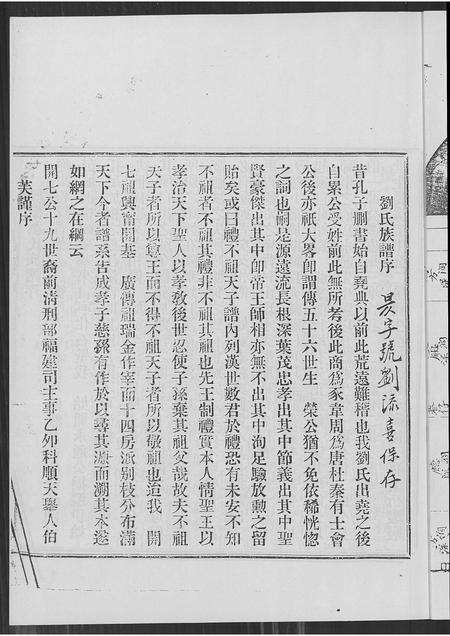 劉氏族譜序
晁子琥劉添喜保存
昔孔子刪書始自堯典以前此荒遠難稽也我劉氏出堯之後
自累公受姓前此無所考後此商爲家韋周爲唐杜秦有士會
公後亦祇大畧卽謂傳五十六世生 榮公猶不免依稀恍惚
之詞也嗣是源遠流長根深葉茂忠孝出其中節義出其中聖
賢豪傑出其中卽帝王師相亦無不出其中洵足驗放勳之留
貽矣或曰禮不祖天子譜內列漢世數君於禮恐有未安不知
不祖者不祖其禮非不祖其祖也先王制禮實本人情聖王以
孝治天下聖人以孝教後世忍使子孫棄其祖父哉故夫不祖
天子者所以尊王而不得不祖天子者所以敬祖也迨我 開
七祖興甯開基 廣傳祖瑞金作宰而十四房派別枝分布滿
天下今者譜系告成孝子慈孫有作於以尋其源而溯其本遂
如網之在綱云
開七公十九世裔前清刑部福建司主事乙夘科順天舉人伯
芙謹序